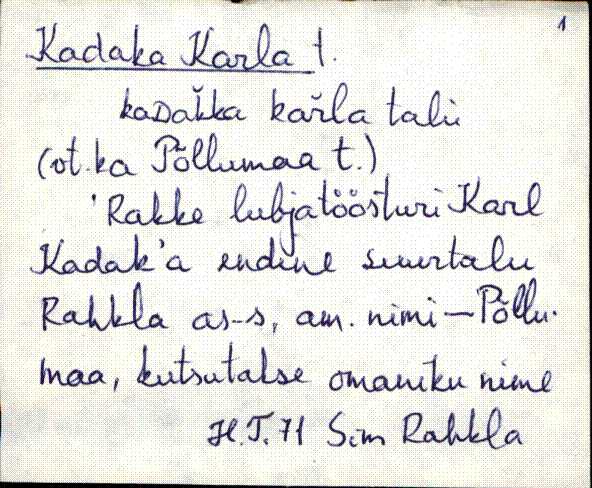 1
Kadaka Karla t.
kaDak̆ka kař̆la talu
(vt. ka Põllumaa t.)
'Rakke lubjatöösturi Karl
Kadak'a endine suurtalu
Rahkla as-s, am. nimi – Põllu-
maa, kutsutakse omaniku nime
H.T. 71 Sim Rahkla